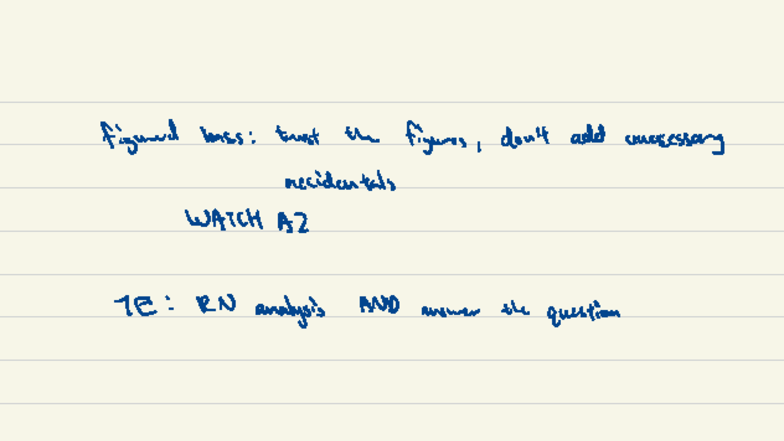 figured bass: trust the figures, don't add unnecessary
accidentals
WATCH A2
7E: RN analysis AND answer the question